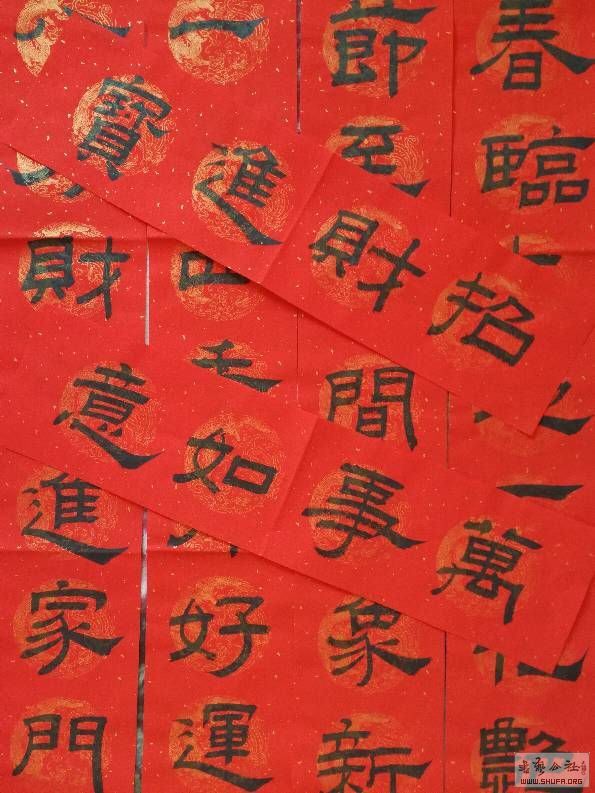 招財進寶
萬事如意
春臨
節至間象新
一四好運
八財進家門
WWW.SHUFA.ORG